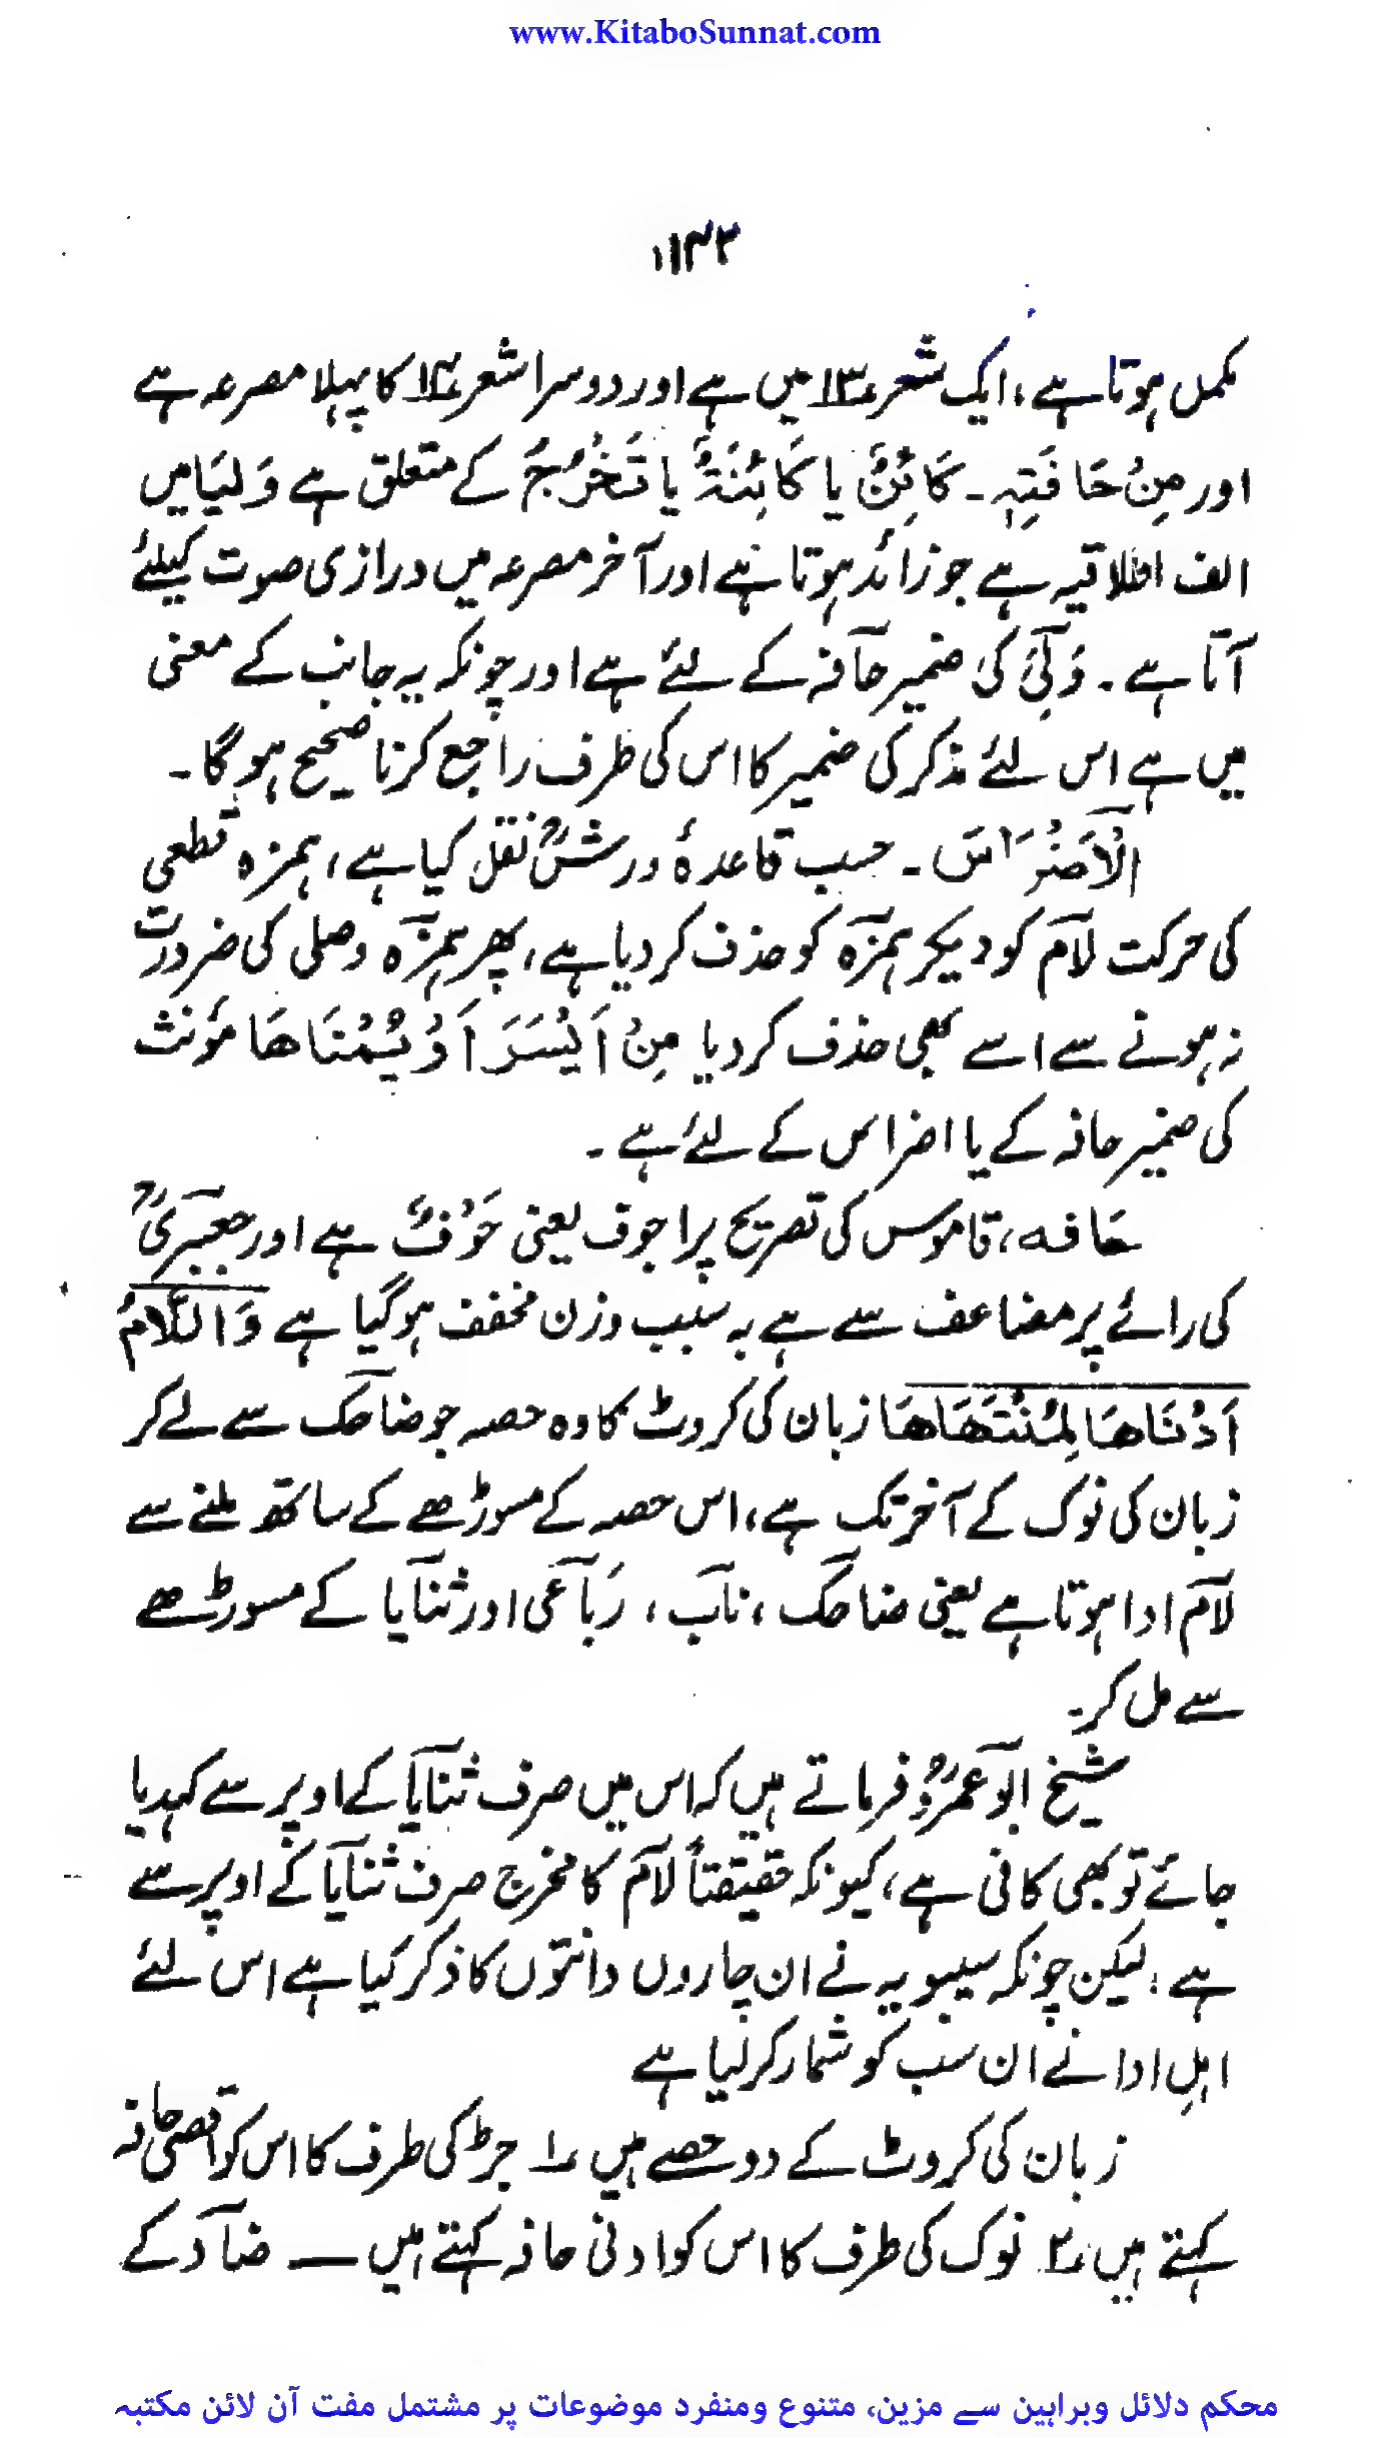 www.KitaboSunnat.com
۱۴۲
مکمل ہوتا ہے، ایک شعر ۱۳ میں ہے اور دوسرا شعر ۱۴ کا پہلا مصرعہ ہے
اور مِنْ حَافَتِہٖ ۔ کَائِنٌ یا کَائِنَۃٌ یا تَخْرُجُ کے متعلق ہے وَلِیَا میں
الف اطلاقیہ ہے جو زائد ہوتا ہے اور آخر مصرعہ میں درازی صوت کیلئے
آتا ہے ۔ وَلِیَ کی ضمیر حافہ کے لئے ہے اور چونکہ یہ جانب کے معنی
میں ہے اس لئے مذکر کی ضمیر کا اس کی طرف راجع کرنا صحیح ہو گا ۔
الْاَضْرَاسَ ۔ حسب قاعدۂ ورشؒ نقل کیا ہے، ہمزہ قطعی
کی حرکت لام کو دیکر ہمزہ کو حذف کر دیا ہے، پھر ہمزہ وصلی کی ضرورت
نہ ہونے سے اسے بھی حذف کر دیا مِنْ اَیْسَرَ اَوْ یُمْنَاھَا مؤنث
کی ضمیر حافہ کے یا اضراس کے لئے ہے ۔
حَافہ، قاموس کی تصریح پر اجوف یعنی حَوْفٌ ہے اور جعبریؒ
کی رائے پر مضاعف سے ہے بہ سبب وزن مخفف ہو گیا ہے وَاللَّامُ
اَدْنَاھَا لِمُنْتَھَاھَا زبان کی کروٹ کا وہ حصہ جو ضاحک سے لے کر
زبان کی نوک کے آخر تک ہے، اس حصہ کے مسوڑھے کے ساتھ ملنے سے
لام ادا ہوتا ہے یعنی ضاحک، ناب، رَباعی اور ثنایا کے مسوڑھے
سے مل کر۔
شیخ ابو عمروؒ فرماتے ہیں کہ اس میں صرف ثنایا کے اوپر سے کہدیا
جائے تو بھی کافی ہے، کیونکہ حقیقتاً لام کا مخرج صرف ثنایا کے اوپر سے
ہے، لیکن چونکہ سیبویہ نے ان چاروں دانتوں کا ذکر کیا ہے اس لئے
اہلِ ادا نے ان سب کو شمار کر لیا ہے
زبان کی کروٹ کے دو حصے ہیں ۱؎ جڑ کی طرف کا اس کو اقصیٰ حافہ
کہتے ہیں ۲؎ نوک کی طرف کا اس کو ادنیٰ حافہ کہتے ہیں — ضاد کے
محکم دلائل وبراہین سے مزین، متنوع ومنفرد موضوعات پر مشتمل مفت آن لائن مکتبہ